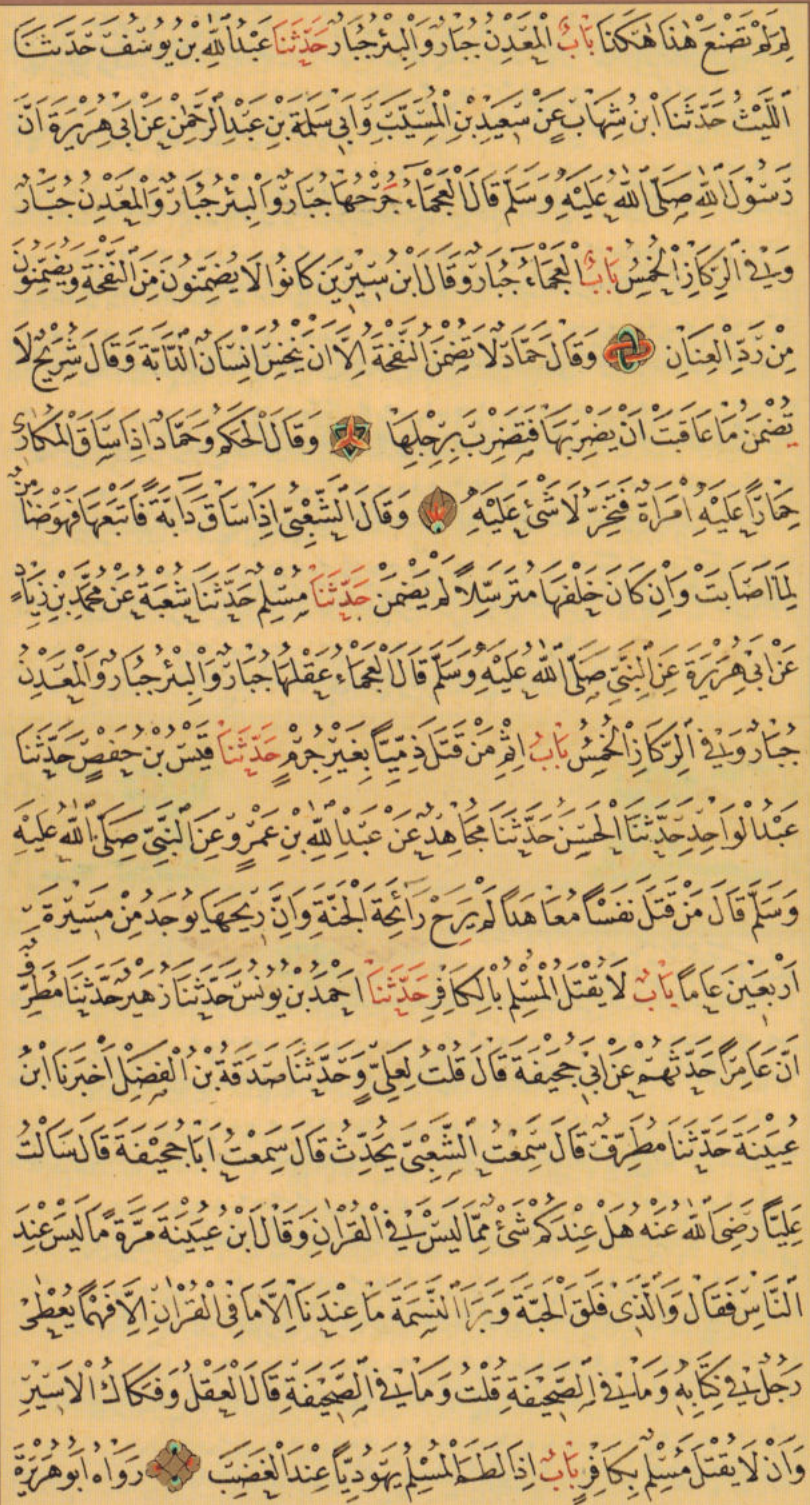 لِمَ لَمْ تَصْنَعْ هٰذَا هٰكَذَا بَابٌ الْمَعْدِنُ جُبَارٌ وَالْبِئْرُ جُبَارٌ حَدَّثَنَا عَبْدُ اللّٰهِ بْنُ يُوسُفَ حَدَّثَنَا
اللَّيْثُ حَدَّثَنَا ابْنُ شِهَابٍ عَنْ سَعِيدِ بْنِ الْمُسَيَّبِ وَاَبِي سَلَمَةَ بْنِ عَبْدِ الرَّحْمٰنِ عَنْ اَبِي هُرَيْرَةَ اَنَّ
رَسُولَ اللّٰهِ صَلَّى اللّٰهُ عَلَيْهِ وَسَلَّمَ قَالَ الْعَجْمَاءُ جَرْحُهَا جُبَارٌ وَالْبِئْرُ جُبَارٌ وَالْمَعْدِنُ جُبَارٌ
وَفِي الرِّكَازِ الْخُمُسُ بَابٌ الْعَجْمَاءُ جُبَارٌ وَقَالَ ابْنُ سِيرِينَ كَانُوا لَا يُضَمِّنُونَ مِنَ النَّفْحَةِ وَيُضَمِّنُونَ
مِنْ رَدِّ الْعِنَانِ وَقَالَ حَمَّادٌ لَا تُضْمَنُ النَّفْحَةُ اِلَّا اَنْ يَنْخُسَ اِنْسَانٌ الدَّابَّةَ وَقَالَ شُرَيْحٌ لَا
تُضْمَنُ مَا عَاقَبَتْ اَنْ يَضْرِبَهَا فَتَضْرِبَ بِرِجْلِهَا وَقَالَ الْحَكَمُ وَحَمَّادٌ اِذَا سَاقَ الْمُكَارِي
حِمَارًا عَلَيْهِ امْرَأَةٌ فَتَخِرُّ لَا شَيْءَ عَلَيْهِ وَقَالَ الشَّعْبِيُّ اِذَا سَاقَ دَابَّةً فَاَتْعَبَهَا فَهُوَ ضَامِنٌ
لِمَا اَصَابَتْ وَاِنْ كَانَ خَلْفَهَا مُتَرَسِّلًا لَمْ يَضْمَنْ حَدَّثَنَا مُسْلِمٌ حَدَّثَنَا شُعْبَةُ عَنْ مُحَمَّدِ بْنِ زِيَادٍ
عَنْ اَبِي هُرَيْرَةَ عَنِ النَّبِيِّ صَلَّى اللّٰهُ عَلَيْهِ وَسَلَّمَ قَالَ الْعَجْمَاءُ عَقْلُهَا جُبَارٌ وَالْبِئْرُ جُبَارٌ وَالْمَعْدِنُ
جُبَارٌ وَفِي الرِّكَازِ الْخُمُسُ بَابُ اِثْمِ مَنْ قَتَلَ ذِمِّيًّا بِغَيْرِ جُرْمٍ حَدَّثَنَا قَيْسُ بْنُ حَفْصٍ حَدَّثَنَا
عَبْدُ الْوَاحِدِ حَدَّثَنَا الْحَسَنُ حَدَّثَنَا مُجَاهِدٌ عَنْ عَبْدِ اللّٰهِ بْنِ عَمْرٍو عَنِ النَّبِيِّ صَلَّى اللّٰهُ عَلَيْهِ
وَسَلَّمَ قَالَ مَنْ قَتَلَ نَفْسًا مُعَاهَدًا لَمْ يَرَحْ رَائِحَةَ الْجَنَّةِ وَاِنَّ رِيحَهَا يُوجَدُ مِنْ مَسِيرَةِ
اَرْبَعِينَ عَامًا بَابٌ لَا يُقْتَلُ الْمُسْلِمُ بِالْكَافِرِ حَدَّثَنَا اَحْمَدُ بْنُ يُونُسَ حَدَّثَنَا زُهَيْرٌ حَدَّثَنَا مُطَرِّفٌ
اَنَّ عَامِرًا حَدَّثَهُمْ عَنْ اَبِي جُحَيْفَةَ قَالَ قُلْتُ لِعَلِيٍّ وَحَدَّثَنَا صَدَقَةُ بْنُ الْفَضْلِ اَخْبَرَنَا ابْنُ
عُيَيْنَةَ حَدَّثَنَا مُطَرِّفٌ قَالَ سَمِعْتُ الشَّعْبِيَّ يُحَدِّثُ قَالَ سَمِعْتُ اَبَا جُحَيْفَةَ قَالَ سَاَلْتُ
عَلِيًّا رَضِيَ اللّٰهُ عَنْهُ هَلْ عِنْدَكُمْ شَيْءٌ مِمَّا لَيْسَ فِي الْقُرْاٰنِ وَقَالَ ابْنُ عُيَيْنَةَ مَرَّةً مَا لَيْسَ عِنْدَ
النَّاسِ فَقَالَ وَالَّذِي فَلَقَ الْحَبَّةَ وَبَرَاَ النَّسَمَةَ مَا عِنْدَنَا اِلَّا مَا فِي الْقُرْاٰنِ اِلَّا فَهْمًا يُعْطٰى
رَجُلٌ فِي كِتَابِهِ وَمَا فِي الصَّحِيفَةِ قُلْتُ وَمَا فِي الصَّحِيفَةِ قَالَ الْعَقْلُ وَفِكَاكُ الْاَسِيرِ
وَاَنْ لَا يُقْتَلَ مُسْلِمٌ بِكَافِرٍ بَابٌ اِذَا لَطَمَ الْمُسْلِمُ يَهُودِيًّا عِنْدَ الْغَضَبِ رَوَاهُ اَبُو هُرَيْرَةَ